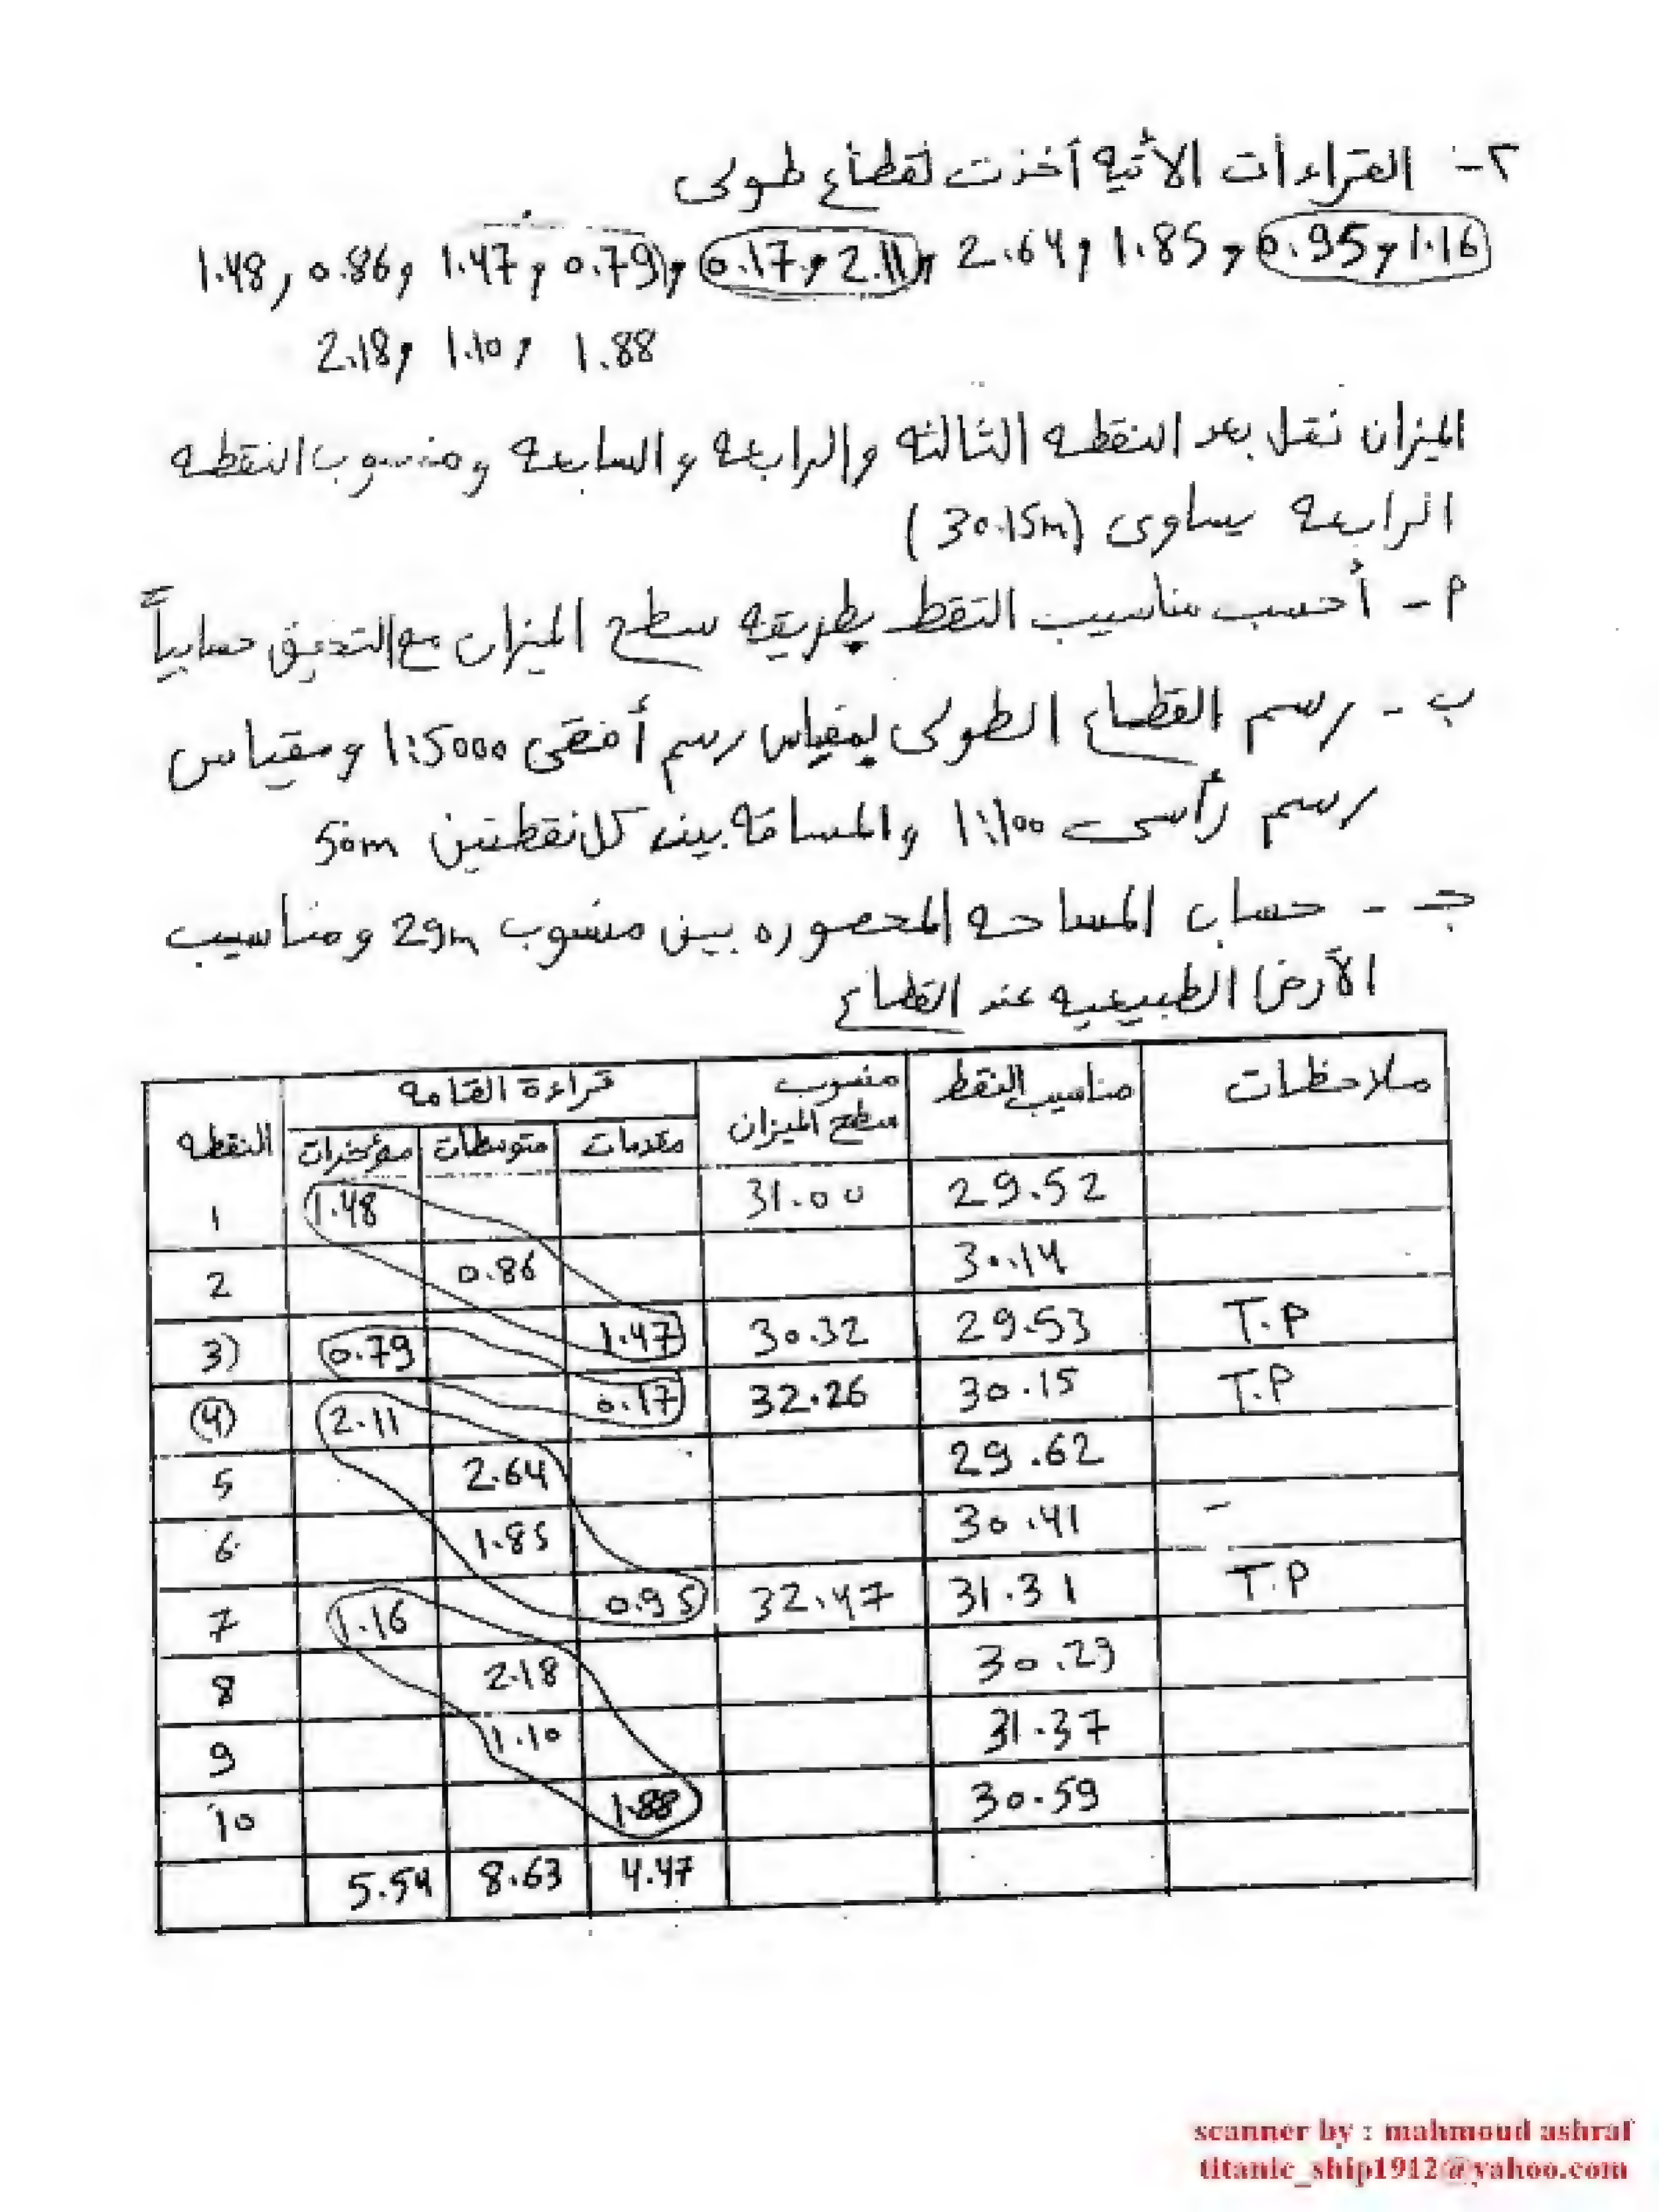 ٢- القراءات الأتيه أخذت لقطاع طولى
1.48 , 0.86 و 1.47 و 0.79 و 0.17 و 2.11 و 2.64 و 1.85 و 0.95 و 1.16
2.18 و 1.10 و 1.88
الميزان نقل بعد النقطه الثالثه والرابعه والسابعه ومنسوب النقطه
الرابعه يساوى (30.15m)
م- أحسب مناسيب النقط بطريقه سطح الميزان مع التدقيق حسابياً
ب- رسم القطاع الطولى بمقياس رسم أفقى 1:5000 ومقياس
رسم رأسى 1:100 والمسافه بين كل نقطتين 50m
جـ- حساب المساحه المحصوره بين منسوب 29m ومناسيب
الأرض الطبيعيه عند القطاع
النقطه قراءة القامه منسوب سطح الميزان مناسيب النقط ملاحظات
مؤخرات متوسطات مقدمات
1 1.48 31.00 29.52
2 0.86 30.14
3) 1.47 0.79 30.32 29.53 T.P
(4) 2.11 0.17 32.26 30.15 T.P
5 2.64 29.62
6 1.85 30.41 -
7 1.16 0.95 32.47 31.31 T.P
8 2.18 30.29
9 1.10 31.37
10 1.88 30.59
5.54 8.63 4.47
scanner by : mahmoud ashraf
titanic_ship1912@yahoo.com